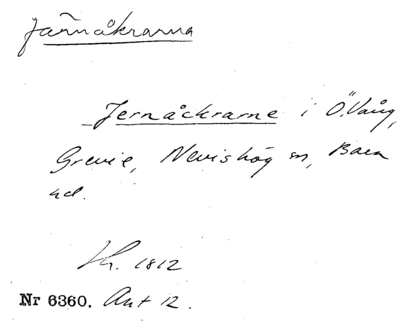 Järnåkrarna
Jernåckrarne i Ö Vång,
Grevie, Nevishög sn, Bara
hd.
Lh. 1812
Nr 6360. Ant 12.